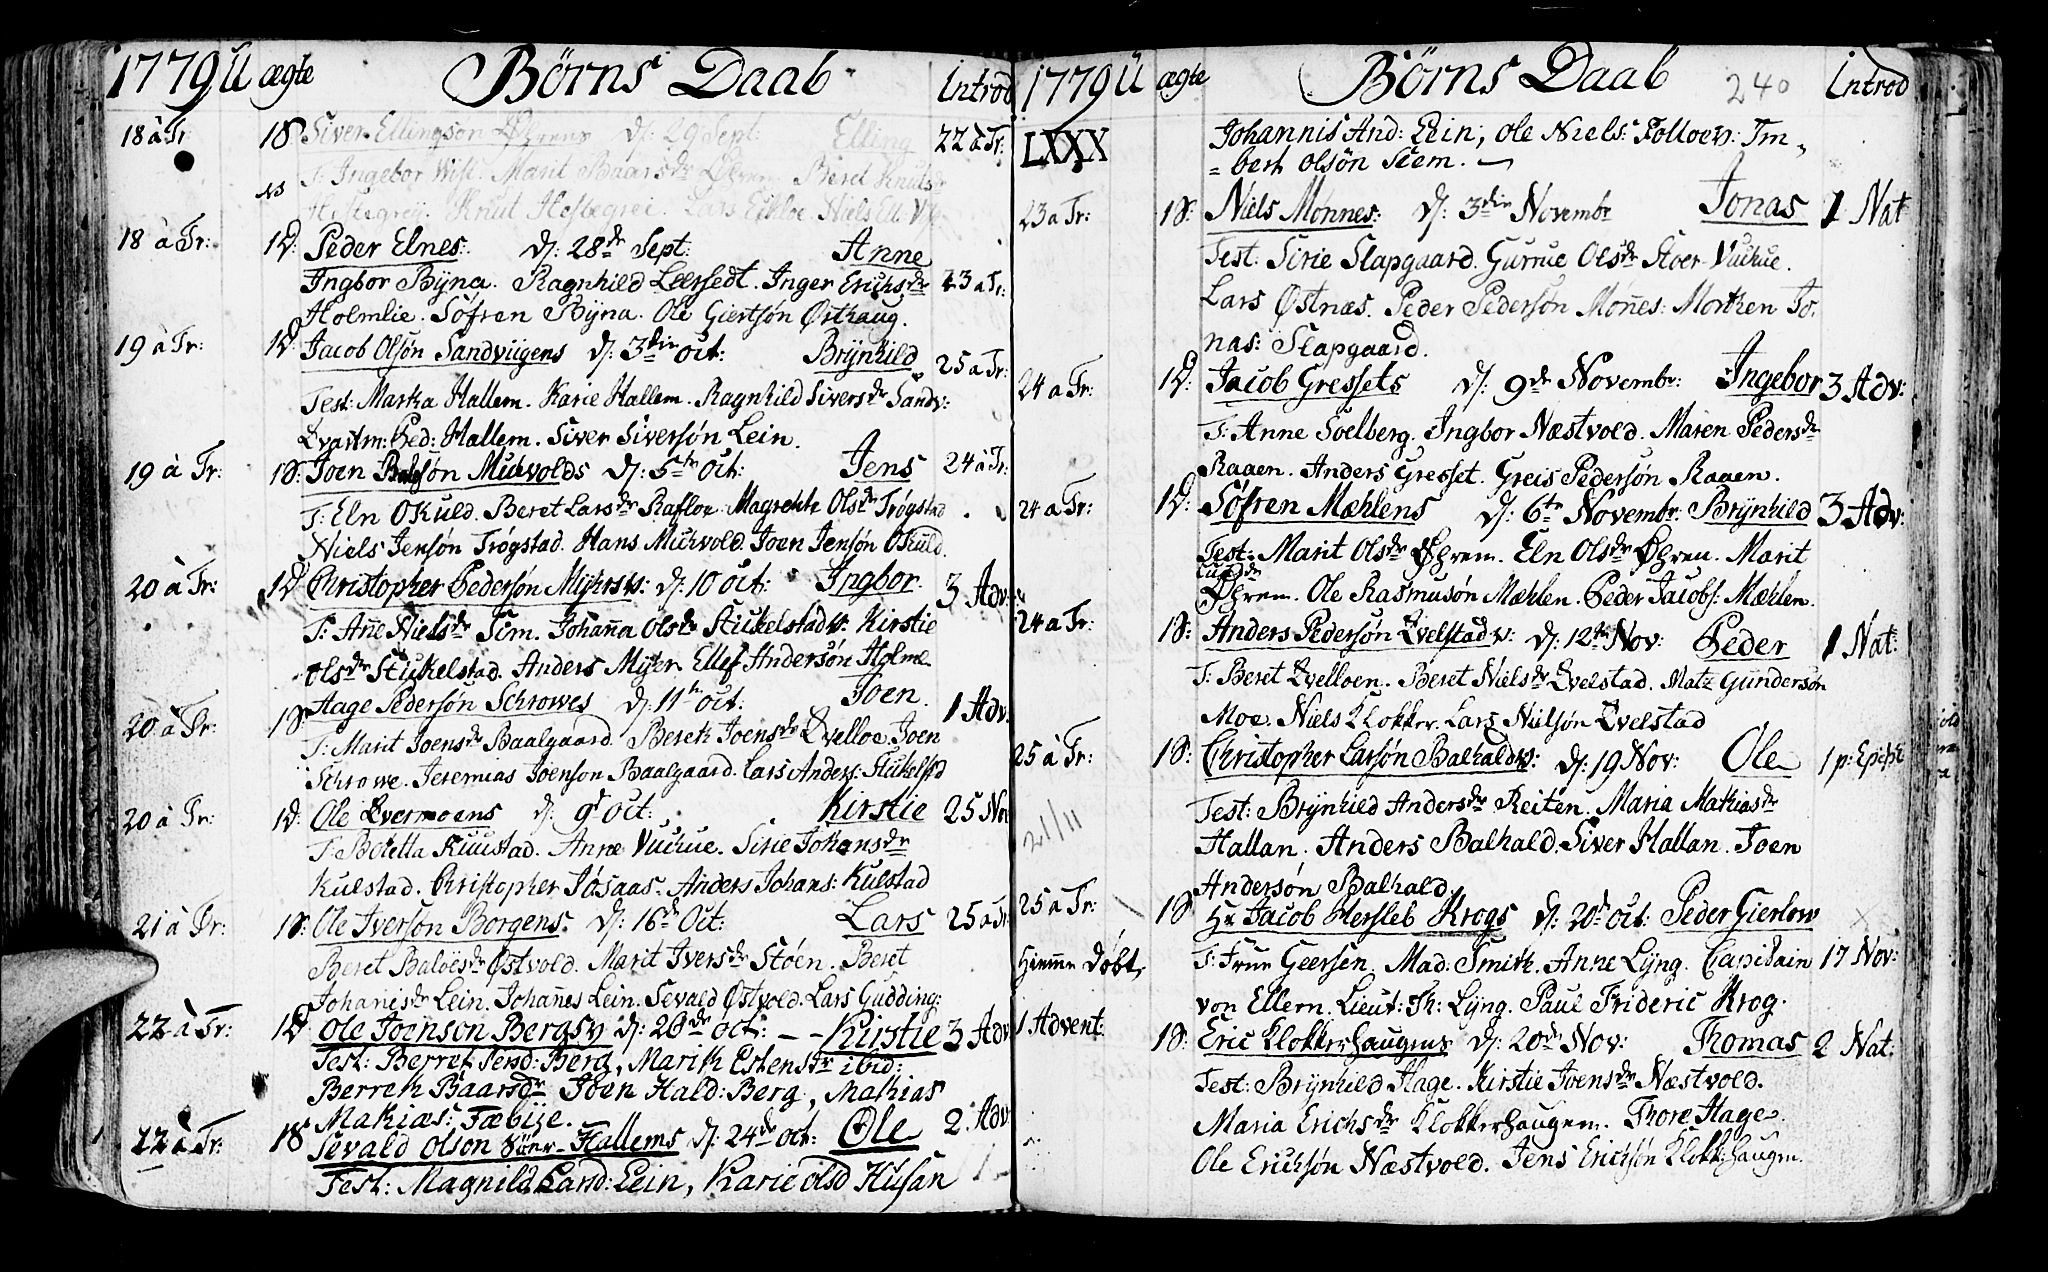 1779 U ægte Børns Daab Introd
18 à Tr: 1S Siver Ellingsøn Øgrens d: 29 Sept: Elling 22 à Tr:
T: Ingebor Wist. Marit Baarsdr Øgren Beret Knutsdr
NB Hestegrei. Knut Hestegrei. Lars Eckloe. Niels Ell:
18 à Tr: 1D: Peder Elnes: d: 28de Sept: Anne
Ingbor Byna. Ragnhild Leersedt. Inger Erichsdr 23 à Tr:
Holmlie. Søfren Byna. Ole Giertsøn Østhaug.
19 à Tr: 1D: Jacob Olsøn Sandviigens d: 3die Oct: Brynhild 25 à Tr:
Test: Marta Hallem. Karie Hallem. Ragnhild Siversdr Sandv:
Qvartm: Ped: Hallem. Siver Siversøn Lein.
19 à Tr: 1S: Joen Muchvolds d: 5te Oct: Jens 24 à Tr:
T: Eln Okuld. Beret Larsdr Rafloe Magrethe Olsdr Trøgstad
Niels Jensøn Trøgstad. Hans Muchvold. Joen Jensøn Okuld.
20 à Tr: 1D Christopher Pedersøn Myhrsv: d: 10 Oct: Ingbor. 3 Adv:
T: Anne Nielsdr Siem. Johanna Olsdr Stickelstadv: Kirstie
Olsdr Stickelstad. Anders Myhr. Ellef Andersøn Holme
20 à Tr: 1S: Aage Pedersøn Schrowes d: 11te Oct: Joen. 1 Adv:
T: Marit Joensdr Baalgaard. Bereth Joensdr Qvelloe Joen
Schrowe. Jeremias Joensøn Baalgaard. Lars Anders: Stikelstd
20 à Tr: 1D: Ole Qvermoens d: 9d Oct: Kirstie 25 Nov
T: Boletta Ruustad. Anne Vuckue. Sirie Johansdr
Kulstad. Christopher Jøsaas. Anders Johans: Kulstad
21 à Tr: 1S: Ole Iversøn Borgens. d: 16de Oct: Lars 25 à Tr:
Beret Østvold. Marit Iversdr Støen. Beret
Johanisdr Lein. Johanes Lein. Sevald Østvold. Lars Gudding:
22 à Tr: 1D Ole Joenson Bergsv d: 20de Oct: Kirstie 3 Adv
Test: Berret Persd: Berg, Marith Estensdr ibid:
Berreth Baarsdr Joen Hald: Berg, Mathias
Mathias: Fæbye.
22 à Tr: 1S Sevald Olson Hallems d: 24de Oct: Ole 2. Adv
Test: Magnild Land: Lein, Karie Olsd Husan
1779 U ægte Børns Daab 240 Introd
LXXX Johannis And: Lein, Ole Niels: Folloev: Im-
=bert Olsön Siem.
23 à Tr: 1S: Niels Monnes: d: 3die Novembr Jonas 1 Nat
Test: Sirie Slapgaard. Gurrue Olsdr Stoer Vuckue.
Lars Østnæs. Peder Pedersøn Mønes: Morthen Jo-
nas: Slapgaard.
24 à Tr: 1D: Jacob Gressets d: 9de Novembr: Ingebor 3 Adv:
T: Anne Soelberg. Ingbor Næstvold. Maren Pedersdr
Raaen. Anders Gresset. Greis Pedersøn Raaen.
24 à Tr: 1D: Søfren Mæhlens d: 6te Novembr: Brynhild 3 Adv:
Test: Marit Olsdr Øgren. Eln Olsdr Øgren. Marit
Øgren. Ole Rasmusøn Mæhlen. Peder Jacobs: Mæhlen.
24 à Tr: 1S: Anders Pedersøn Qvelstadv: d: 12te Nov: Peder 1 Nat:
T: Beret Qvelloen. Beret Nielsdr Qvelstad. Matz Gundersøn
Moe. Niels Klokker. Lars Nielsøn Qvelstad
25 à Tr: 1S: Christopher Larsøn Balhaldsv: d: 19 Nov: Ole 1 p: Epiph
21/11 Test: Brynhild Andersdr Reiten. Maria Mathiasdr
Hallan. Anders Balhald. Siver Hallan. Joen
Andersøn Balhald.
25 à Tr: 1S Hr Jacob Hersleb Krogs d: 20d Oct: Peder Gierlow X
Hieme Døbt, T: Frue Geersen. Mad: Smith. Anne Lyng. Capitain 17 Nov:
von Ellern. Lieut: Th: Lyng. Paul Frideric Krog.
1 Advent: 1S: Eric Klokkerhaugens d: 20de Nov: Thomas 2 Nat:
Test: Brynhild Hage. Kirstie Joensdr Næstvold.
Maria Erichsdr Klokkerhaugen. Thore Hage
Ole Ericksøn Næstvold. Jens Ericksøn Klokkrhaugn.